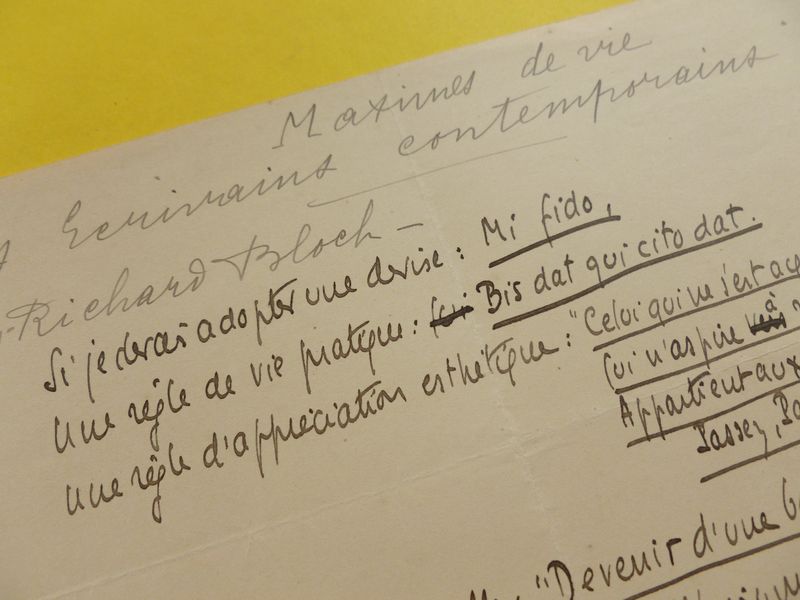 Maximes de vie
Ecrivains contemporains
-Richard Bloch -
Si je devais adopter une devise : Mi fido,
Une règle de vie pratique : Bis dat qui cito dat.
Une règle d'appréciation esthétique : "Celui qui ne s'est
lui n'aspire à
Appartient aux
Passez,
"Devenir d'une